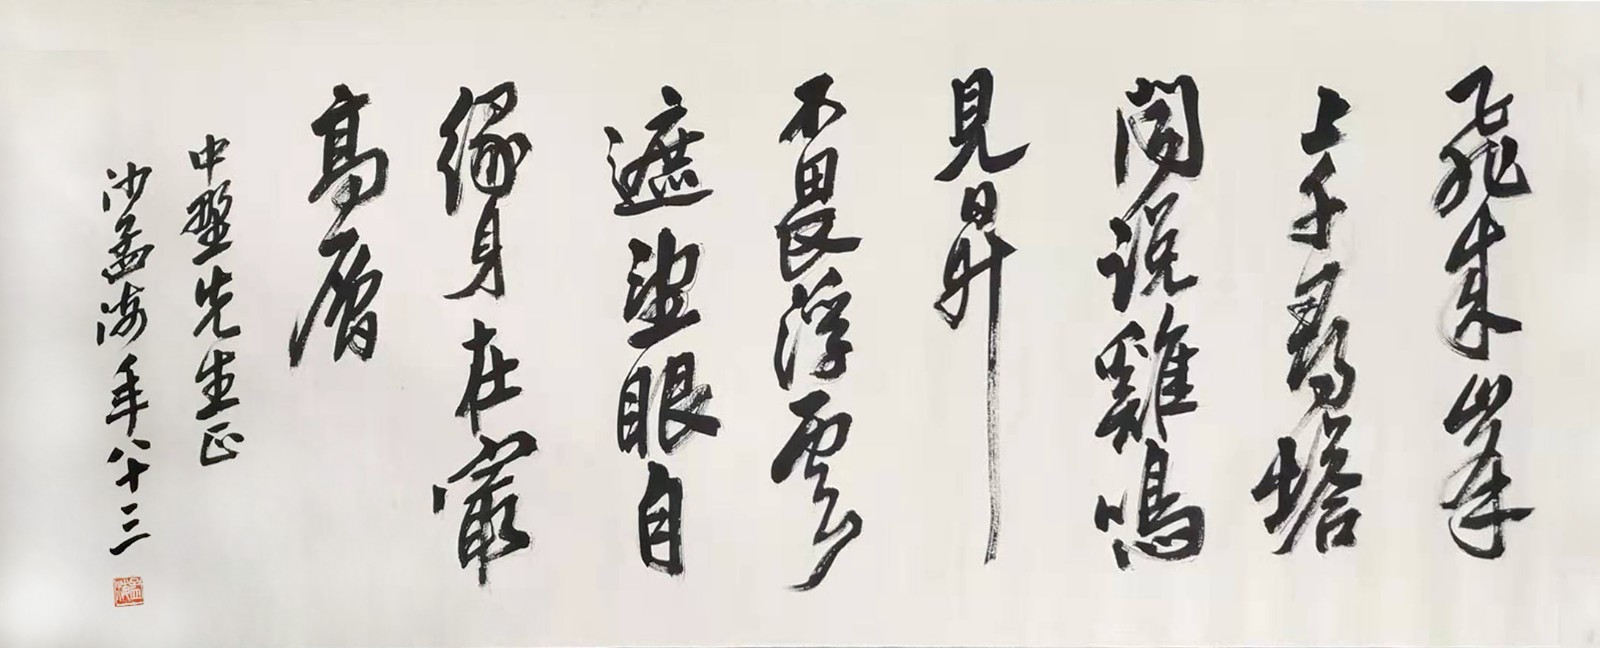 飛来峯
上千尋塔
聞説雞鳴
見日昇
不畏浮雲
遮望眼自
緣身在最
高層
中墅先生正
沙孟海年八十三